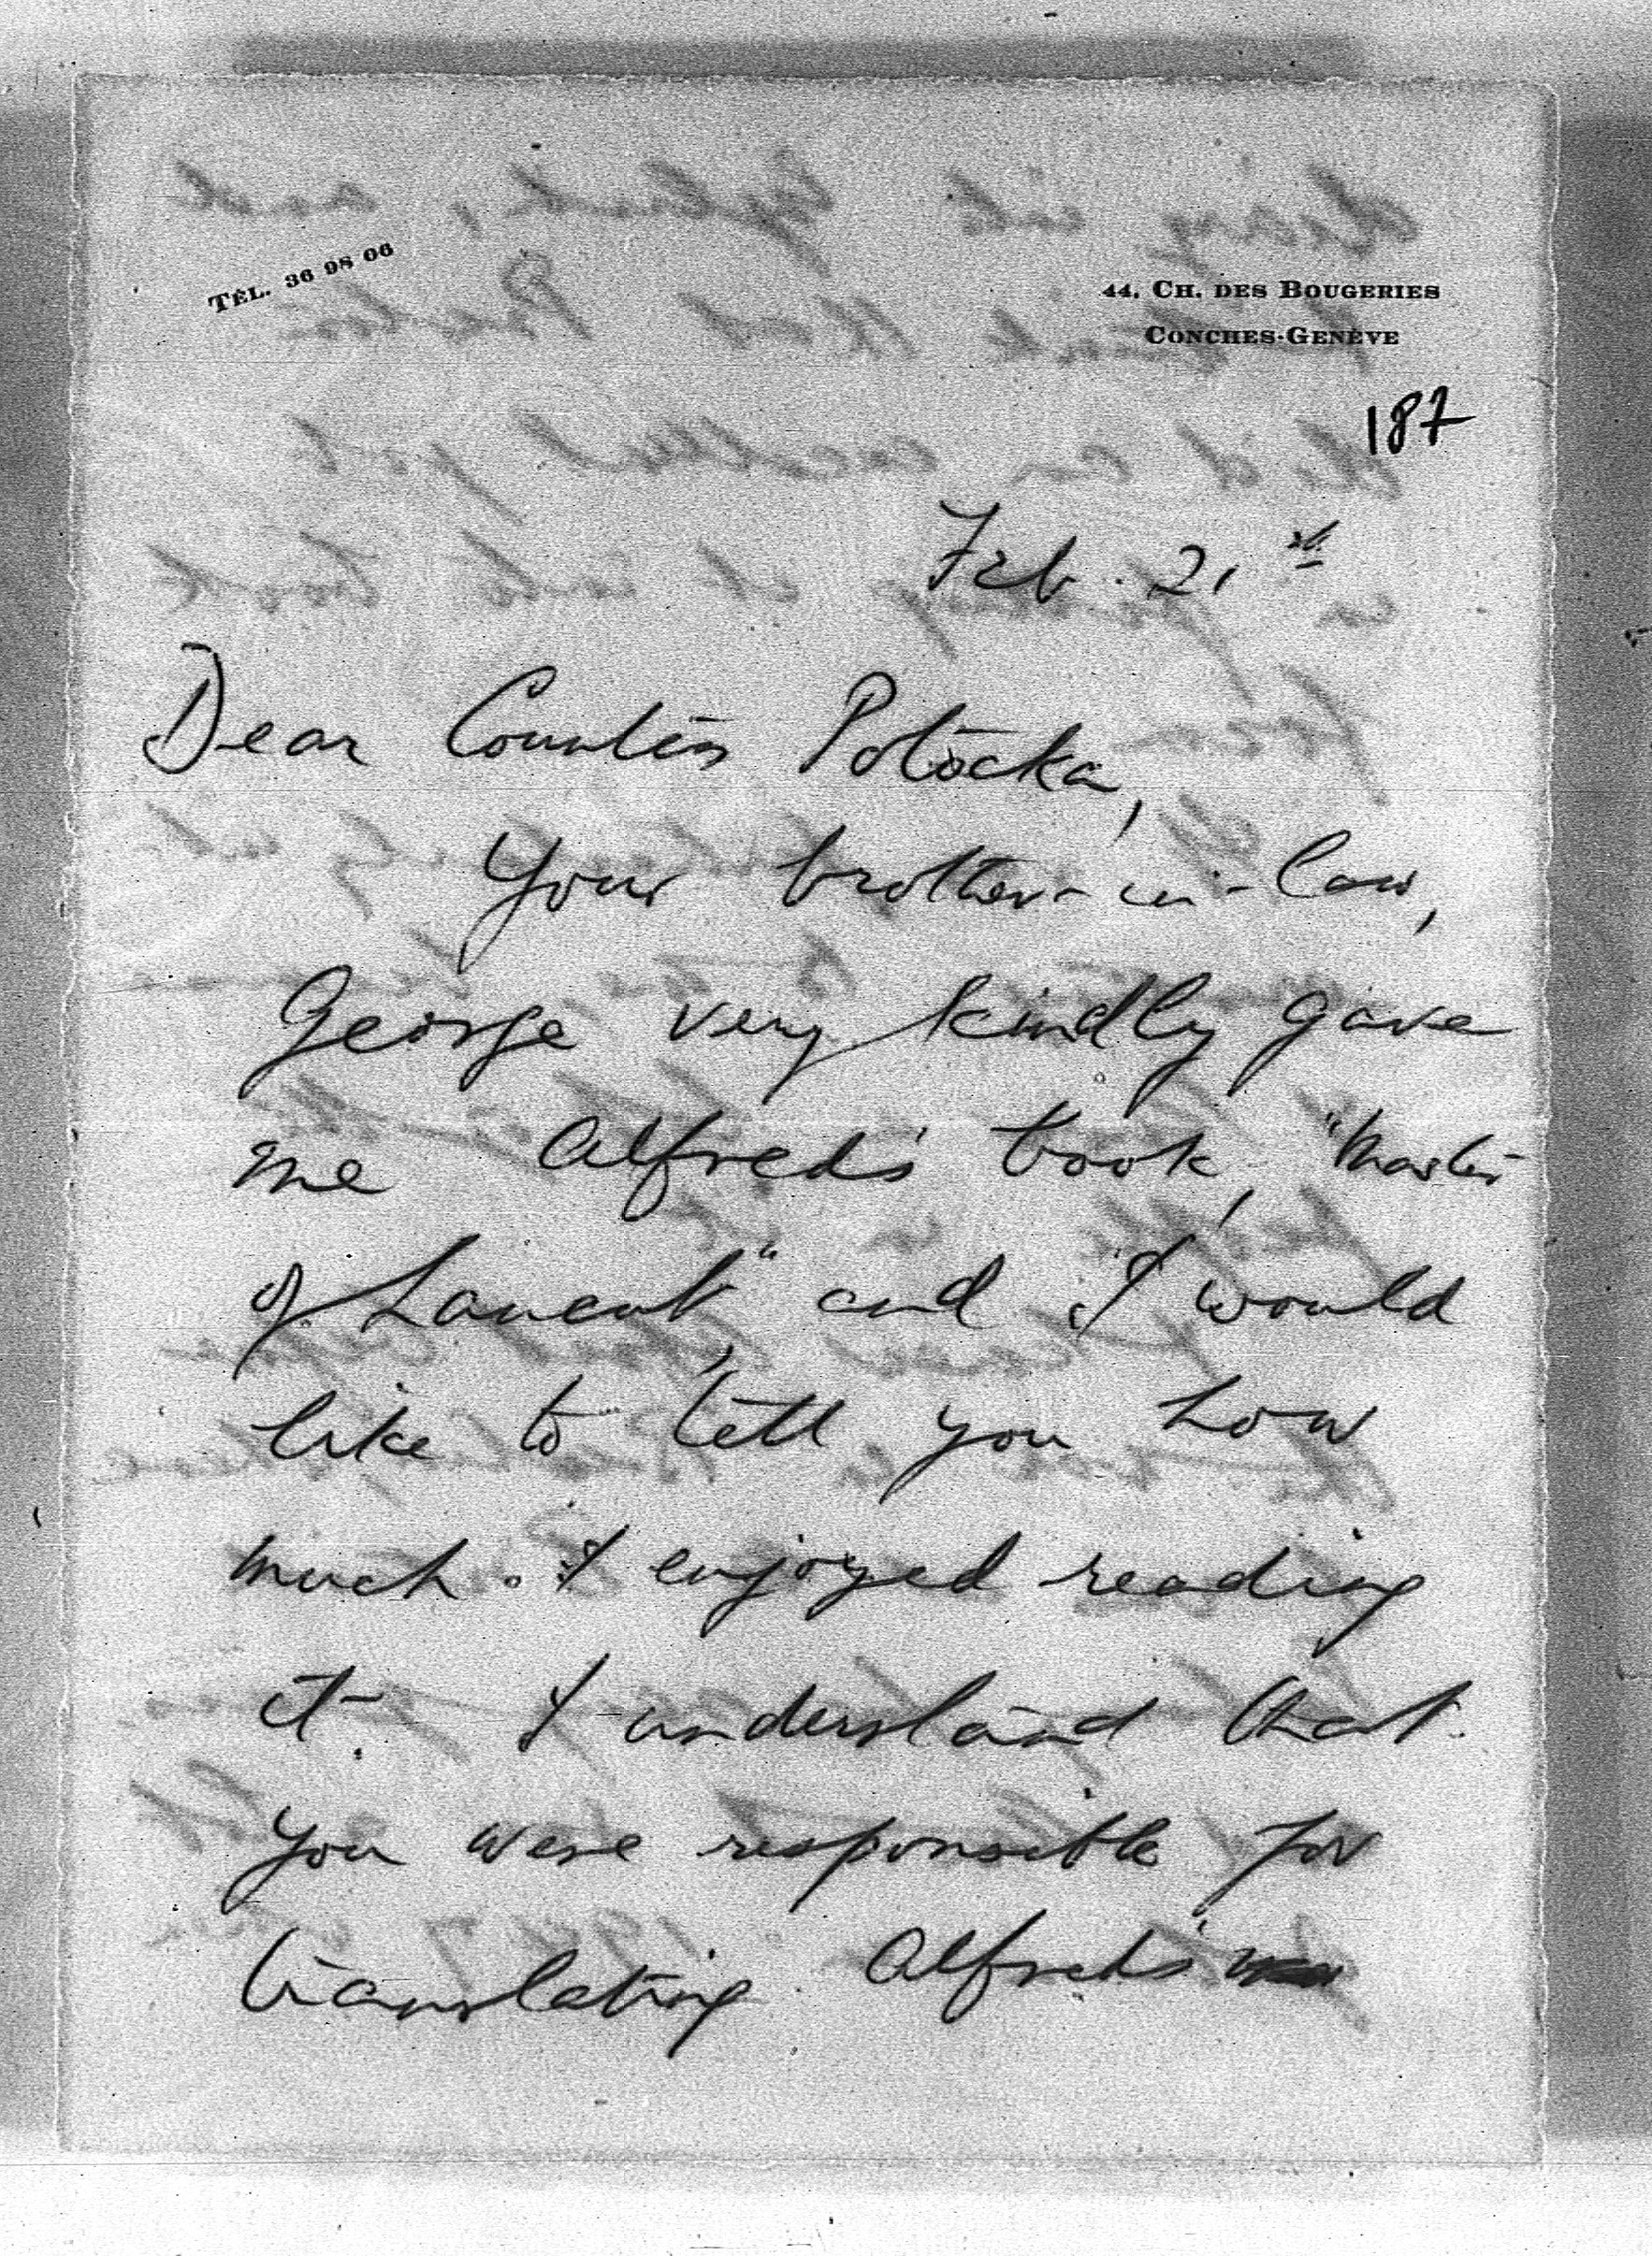 TÉL. 36 98 06
44, CH. DES BOUGERIES
CONCHES-GENÈVE
187
Feb. 21st
Dear Countess Potocka,
Your brother-in-law,
George very kindly gave
me Alfred's book, "Master
of Lancut," and I would
like to tell you how
much I enjoyed reading
it. I understand that
you were responsible for
translating Alfred's